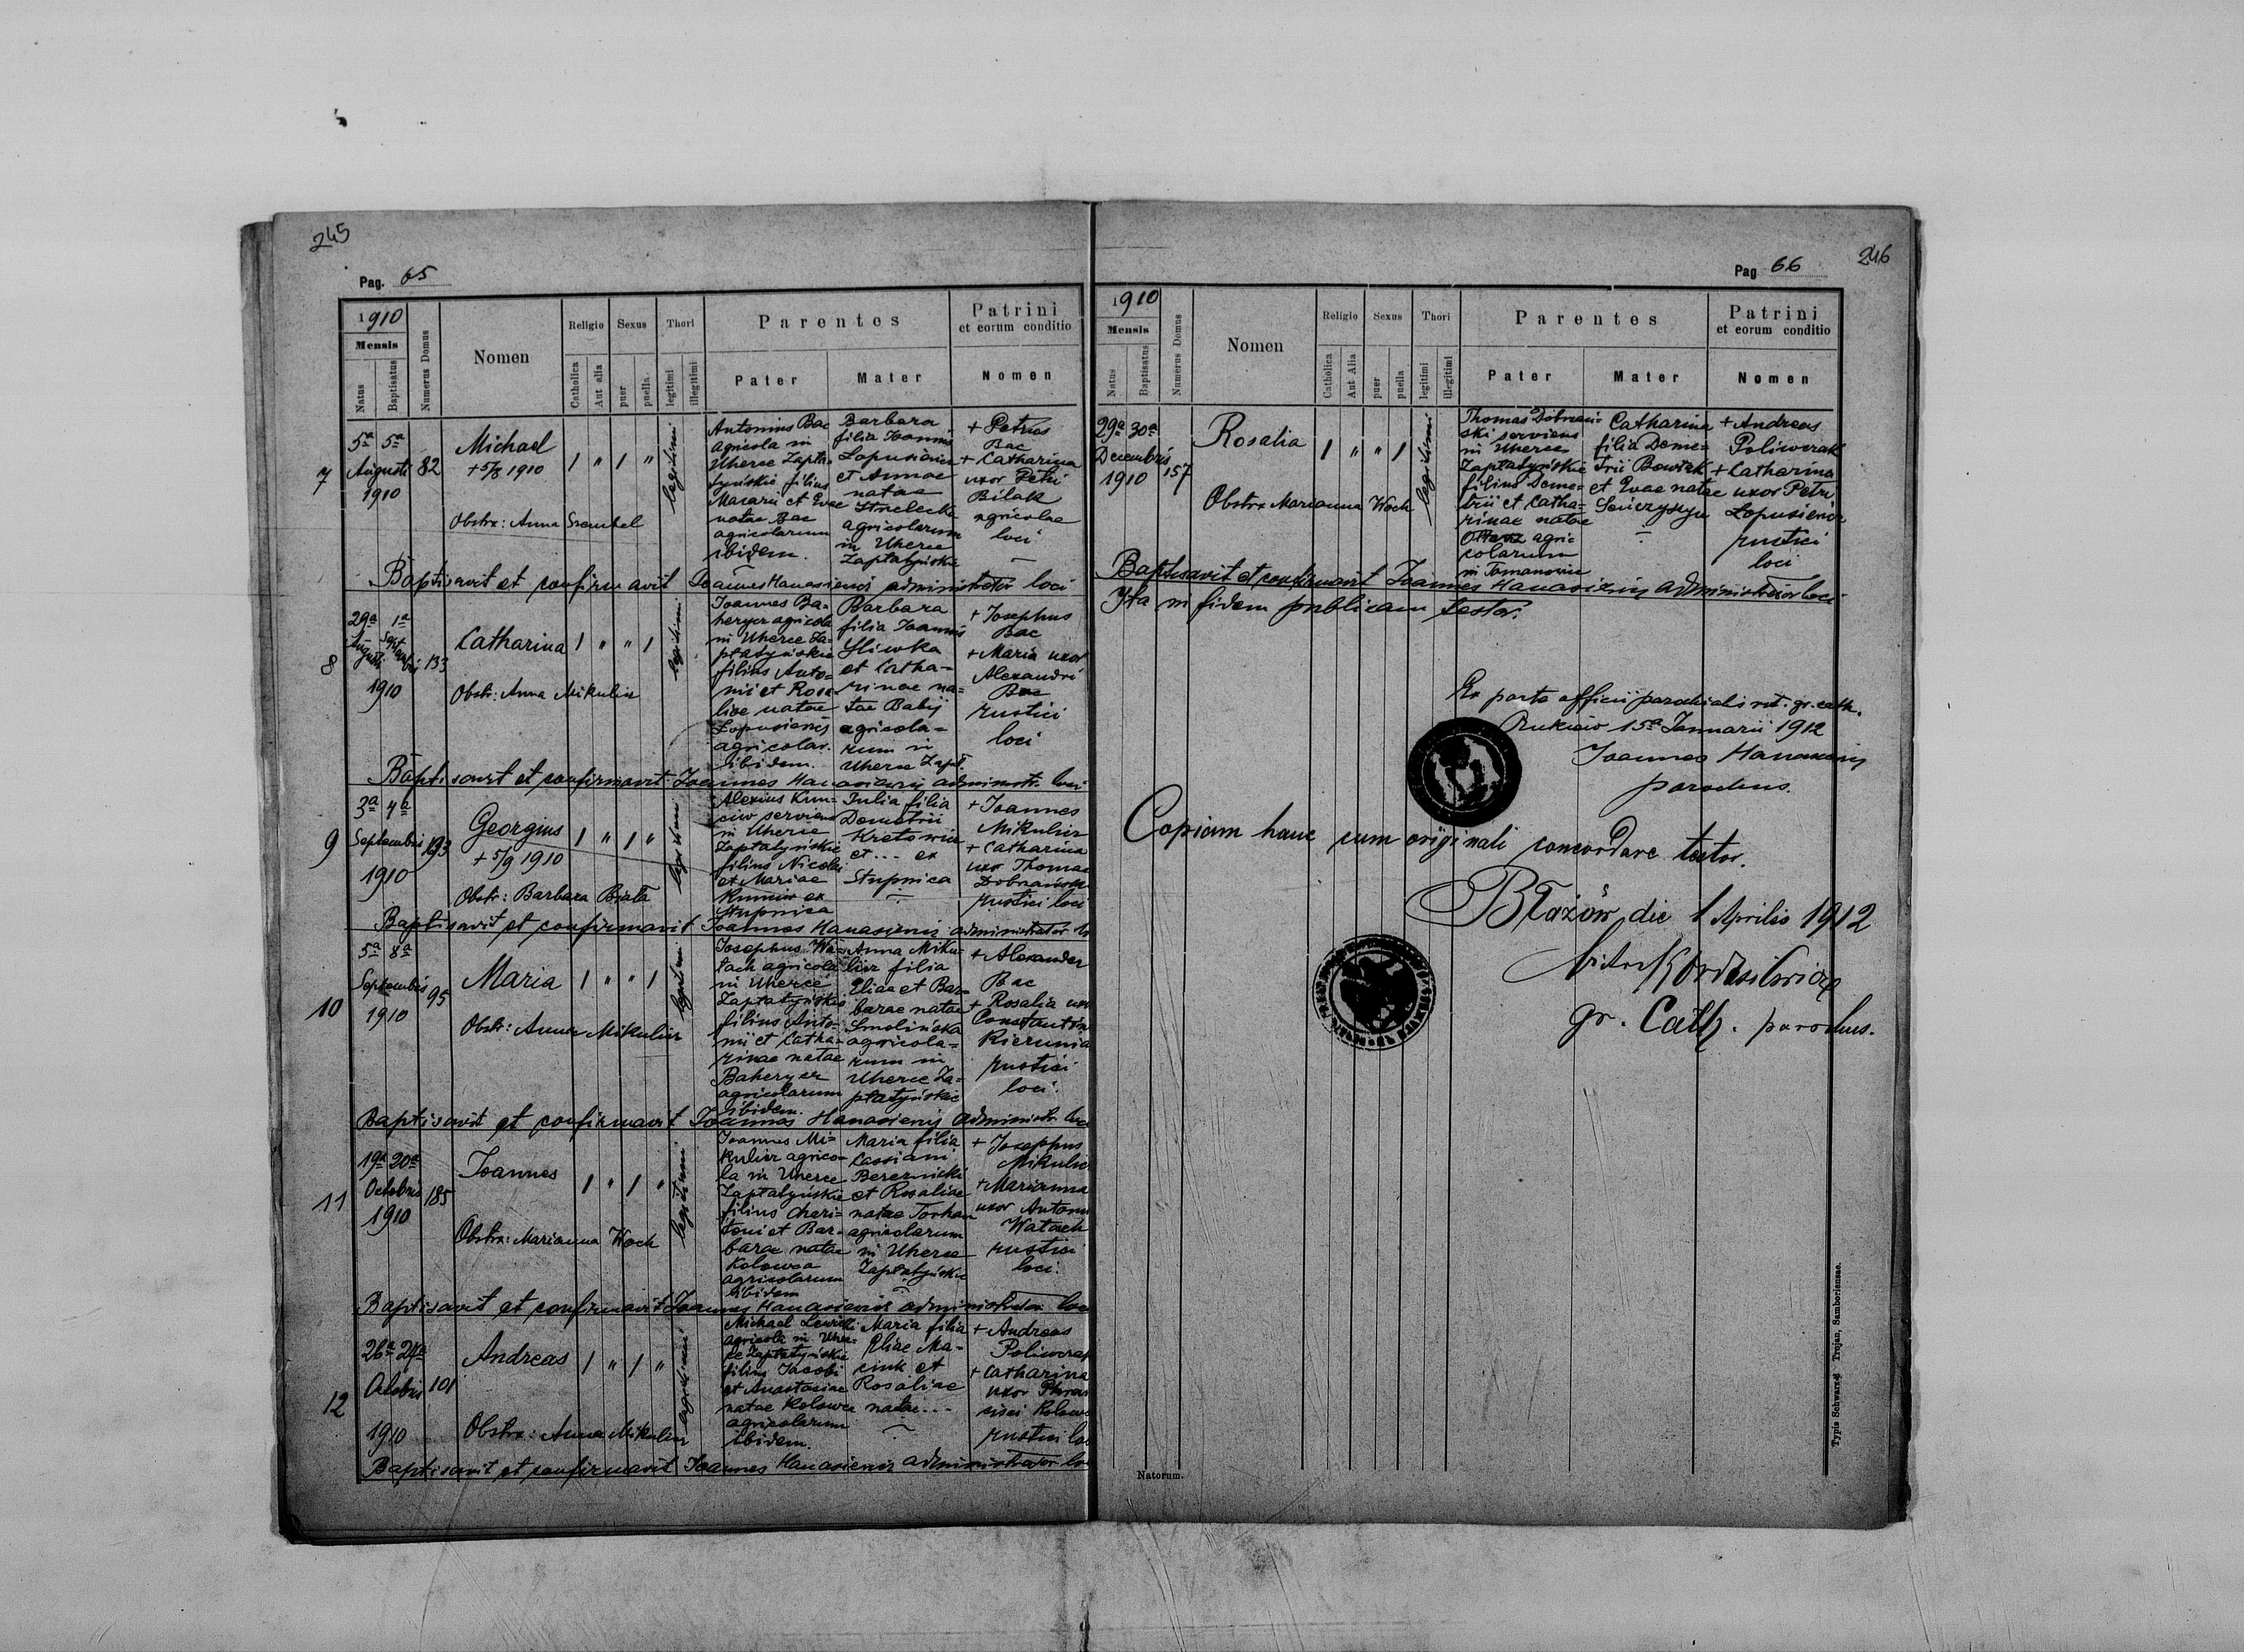 245
Pag. 65
1910
Mensis
Natus
Baptisatus
Numerus Domus
Nomen
Religio
Catholica
Aut alia
Sexus
puer
puella
Thori
legitimi
illegitimi
Parentes
Pater
Mater
Patrini
et eorum conditio
Nomen
7
5a 5a
Augusti
1910
82
Michael
+ 5/8 1910
Obstrx: Anna
1 " 1 "
legitimi
Antonius Bac
agricola in
Uherce Zapła-
tyńskie filius
Macarii et Evae
natae Bac
agricolarum
ibidem.
Barbara
filia Joannis
et Annae
natae
Strzelecka
agricolarum
in Uherce
Zapłatyńskie
+ Petrus
Bac
+ Catharina
uxor Petri
Bilak
agricolae
loci
Baptisavit et confirmavit Joannes Hanasiewicz administrator loci
8
29a 1a
Augusti Septembris
1910
133
Catharina
Obstr: Anna Mikulicz
1 " " 1
legitimi
Joannes Ba-
heryer agricola
in Uherce Za-
płatyńskie
filius Anto-
nii et Rosa-
liae natae
agricolar.
ibidem.
Barbara
filia Joannis
Sliwka
et Catha-
rinae na-
tae Babij
agricola-
rum in
Uherce Zapł.
+ Josephus
Bac
+ Maria uxor
Alexandri
Bac
rustici
loci
Baptisavit et confirmavit Joannes Hanasiewicz administr. loci
9
3a 4a
Septembris
1910
193
Georgius
+ 5/9 1910
Obstr: Barbara Biała
1 " 1 "
legitimi
Alexius Kun-
ciw serviens
in Uherce
Zapłatyńskie
filius Nicolai
et Mariae
Kunciw ex
Stupnica
Julia filia
Demetrii
Kretowicz
et ... ex
Stupnica
+ Joannes
Mikulicz
+ Catharina
uxor Thomae
Dobrzański
rustici loci
Baptisavit et confirmavit Joannes Hanasiewicz administrator
10
5a 8a
Septembris
1910
95
Maria
Obstr: Anna Mikulicz
1 " " 1
legitimi
Josephus Wa-
łach agricola
in Uherce
Zapłatyńskie
filius Anto-
nii et Catha-
rinae natae
Baheryer
agricolarum
ibidem.
Anna Miku-
licz filia
Eliae et Bar-
barae natae
Smolińska
agricola-
rum in
Uherce Za-
płatyńskie
+ Alexander
Bac
+ Rosalia uxor
Constantin
Kierunia
rustici
loci.
Baptisavit et confirmavit Joannes Hanasiewicz administr. loci
11
19a 20a
Octobris
1910
185
Joannes
Obstrx: Marianna Woch
1 " 1 "
legitimi
Joannes Mi-
kulicz agrico-
la in Uherce
Zapłatyńskie
filius Chari-
toni et Bar-
barae natae
Kolowca
agricolarum
ibidem
Maria filia
Cassiani
Bereznicki
et Rosaliae
natae Torhan
agricolarum
in Uherce
Zapłatyńskie
+ Josephus
Mikulic
+ Marianna
uxor Antoni
Wałach
rustici
loci.
Baptisavit et confirmavit Joannes Hanasiewicz administrator loci
12
26a 27a
Octobris
1910
101
Andreas
Obstrx: Anna Mikulicz
1 " 1 "
legitimi
Michael Lewicki
agricola in Uher-
ce Zapłatyńskie
filius Jacobi
et Anastasiae
natae Kolowca
agricolarum
ibidem.
Maria filia
Eliae Ma-
ciuk et
Rosaliae
natae...
+ Andreas
Poliwczak
+ Catharina
uxor
rustici loci
Baptisavit et confirmavit Joannes Hanasiewicz administrator loci
246
Pag 66
1910
Mensis
Natus
Baptisatus
Numerus Domus
Nomen
Religio
Catholica
Aut Alia
Sexus
puer
puella
Thori
legitimi
illegitimi
Parentes
Pater
Mater
Patrini
et eorum conditio
Nomen
29a 30a
Decembris
1910
157
Rosalia
Obstrx Marianna Woch
1 " " 1
legitimi
Thomas Dobrzań-
ski serviens
in Uherce
Zapłatyńskie
filius Deme-
trii et Catha-
rinae natae
agri-
colarum
in Tomanowice
Catharina
filia Deme-
trii Bowtak
et Evae natae
+ Andreas
Poliwczak
+ Catharina
uxor Petri
Lopusiewicz
rustici
loci
Baptisavit et confirmavit Joannes Hanasiewicz administrator loci
Ita in fidem publicam testor.
Ex parte officii parochialis rit. gr. cath.
15a Januarii 1912
Joannes Hanasiewicz
parochus.
Copiam hanc cum originali concordare testor.
Błażów die 1 Aprilis 1912
gr. Cath. parochus.
Natorum.
Typis Schwarz et Trojan, Samboriensae.